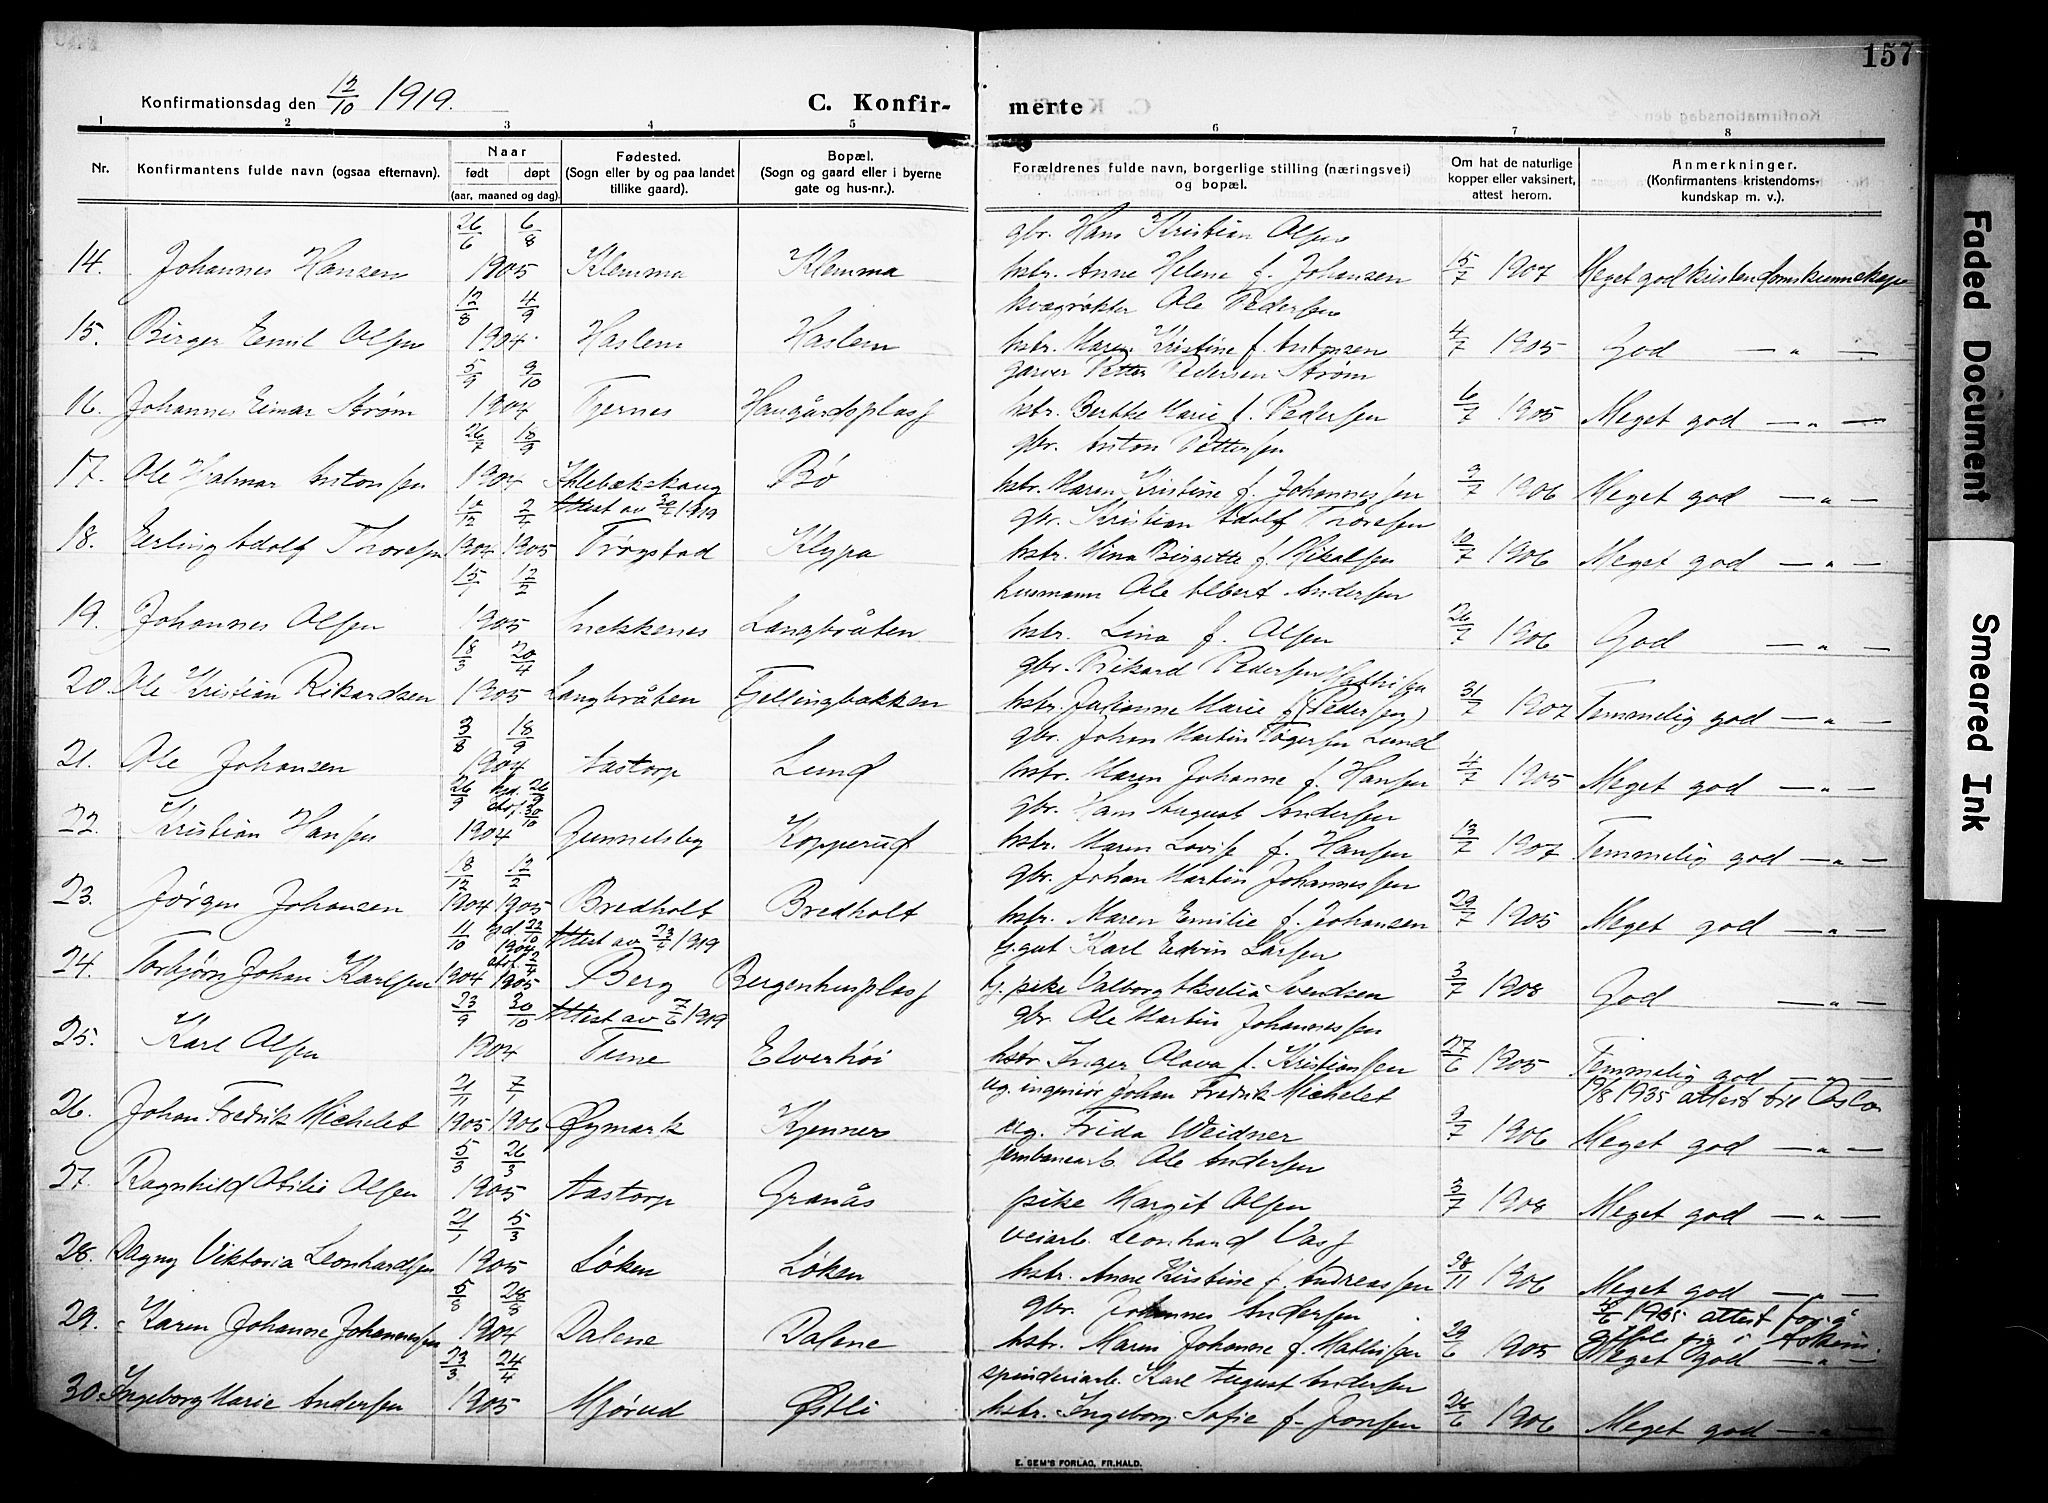 157
Konfirmationsdag den 12/10 1919.
C. Konfir- merte
1 2 3 4 5 6 7 8
Nr. Konfirmantens fulde navn (ogsaa efternavn). Naar født døpt (aar, maaned og dag). Fødested. (Sogn eller by og paa landet tillike gaard). Bopæl. (Sogn og gaard eller i byerne gate og hus-nr.). Forældrenes fulde navn, borgerlige stilling (næringsvei) og bopæl. Om hat de naturlige kopper eller vaksinert, attest herom. Anmerkninger. (Konfirmantens kristendoms- kundskap m. v.).
26/6 6/8 gbr. Hans Kristian Olsen
14. Johannes Hansen 1905 Klemma Klemma hstr. Anne Helene f. Johansen 15/7 1907 Meget god kristendomskunnskap
12/8 4/9 kvægrøkter Ole Pedersen
15. Birger Emil Olsen 1904 Haslem Haslem hstr. Maren Kristine f. Antonsen 4/7 1905 God — " —
5/9 9/10 garver Petter Pedersen Strøm
16. Johannes Eimar Strøm 1904 Tjernes Haugårdsplass hstr. Berthe Marie f. Pedersen 6/7 1905 Meget god — " —
26/7 18/9 gbr. Anton Pettersen
17. Ole Hjalmar Antonssen 1904 Bø hstr. Maren Kristine f. Johannessen 9/7 1906 Meget god — " —
12/12 2/4 Attest av 1919 gbr. Kristian Adolf Thoresen
18. Erling Adolf Thoresen 1904 1905 Trøgstad Klypa hstr. Mina Birgitte f. Mikalsen 10/7 1906 Meget god — " —
15/1 12/2 husmann Ole Albert Andersen
19. Johannes Olsen 1905 Snekkenes Langbråten hstr. Lina f. Olsen 26/7 1906 God — " —
18/3 20/4 gbr. Rikard Pedersen Mathisen
20. Ole Kristian Rikardsen 1905 Langbråten Fjellingbakken hstr. Julianne Marie f. (Pedersen) 31/7 1907 Temmelig god — " —
3/8 18/9 gbr. Johan Martin Tøgersen Lund
21. Ole Johansen 1904 Aastorp Lund hstr. Maren Johanne f. Hansen 4/7 1905 Meget god — " —
26/9 hjd. 26/9 stad. 30/10 gbr. Hans August Andersen
22. Kristian Hansen 1904 Gunnelsby Kopperud hstr. Maren Lovise f. Hansen 13/7 1907 Temmelig god — " —
18/12 12/2 gbr. Johan Martin Johannessen
23. Jørgen Johansen 1904 1905 Bredholt Bredholt hstr. Maren Emilie f. Johansen 29/7 1905 Meget god — " —
11/10 hjd. 22/10 1904 Attest av 23/4 1919 u. gut Karl Edvin Larsen
24. Torbjørn Johan Karlsen 1904 1905 Berg Bergenhusplass pike Valborg Akselia Svendsen 3/7 1908 God — " —
23/9 30/10 Attest av 7/6 1919 gbr. Ole Martin Johannessen
25. Karl Olsen 1904 Tune Elverhøi hstr. Inger Olava f. Kristianssen 17/6 1905 Temmelig god — " —
21/11 7/1 ug. ingeniør Johan Fredrik Michelet 19/8 1935 attest til Oslo
26. Johan Fredrik Michelet 1905 1906 Øymark Kjennes ug. Frida Weidner 9/7 1906 Meget god — " —
5/3 26/3 jernbanearb. Ole Andersen
27. Ragnhild Otilie Olsen 1905 Aastorp Granås pike Margit Olsen 3/7 1908 Meget god — " —
21/1 5/3 veiarb. Leonhard Vass
28. Dagny Viktoria Leonhardssen 1905 Løken Løken hstr. Anne Kirstine f. Andreassen 1906 Meget god — " —
5/8 28/8 gbr. Johannes Andersen 1935 attest for å
29. Karen Johanne Johannessen 1904 Dalene Dalene hstr. Maren Johanne f. Mathissen 29/6 1905 gifte sig Meget god — " —
23/3 24/4 spinderiarb. Karl August Andersen
30. Ingeborg Marie Andersen 1905 Mjørud Østli hstr. Ingeborg Sofie f. Jonsen 24/6 1906 Meget god — " —
E. SEM'S FORLAG, FR.HALD.
Faded Document
Smeared Ink